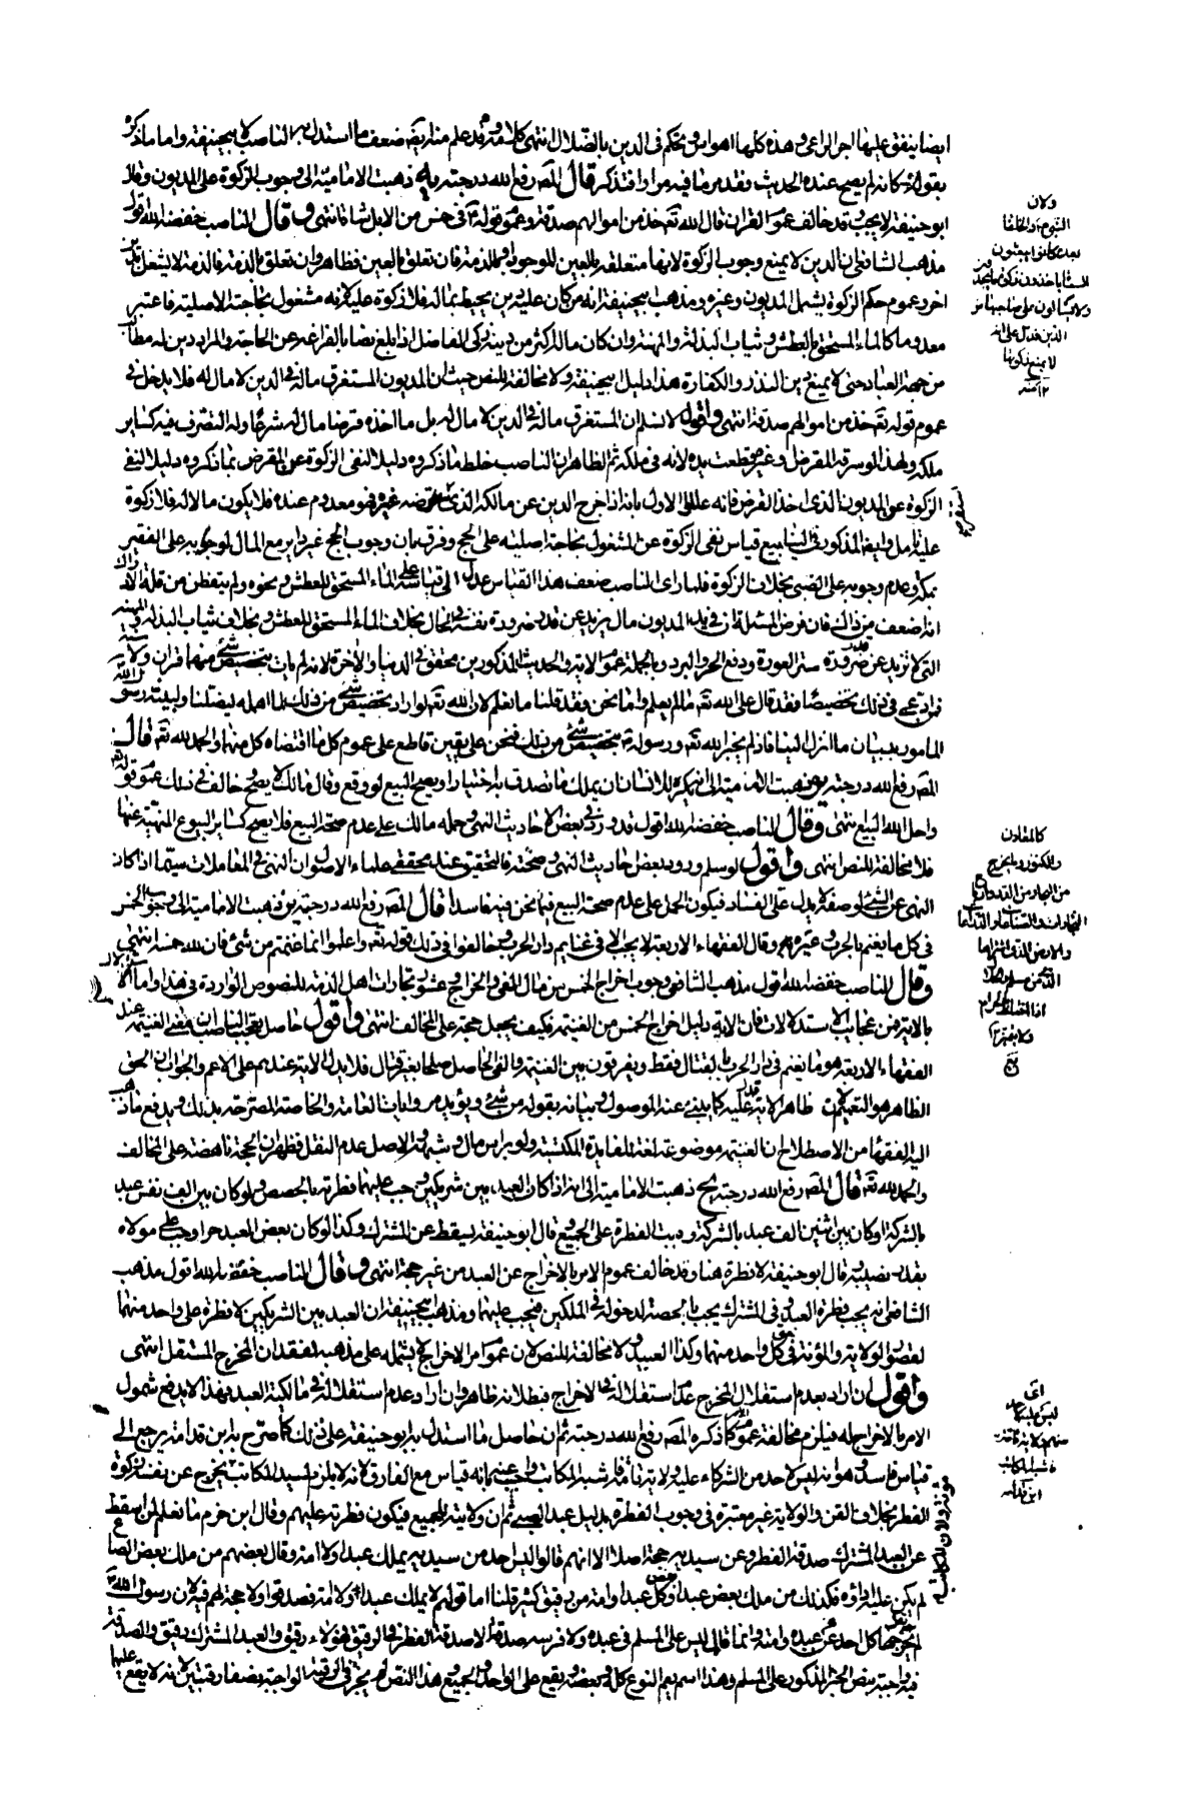 ايضا ينفق عليها اجر الراعى وهذه كلها اهواس وتحكم فى الدين بالضلال انتهى كلامه وقد علم منه ايضا ضعف ما استدل به الناصب لابيحنيفة واما ما ذكره
بقوله كانه لم يصح عنده الحديث فقد مر ما فيه مرارا فتذكر قال المصـ رفع الله درجته يه ذهبت الامامية الى وجوب الزكوة على المديون وقال
ابو حنيفة لا يجب وقد خالف عموم القران قال الله تعـ خذ من اموالهم صدقة وعموم قوله ع فى خمس من الابل شاة انتهى وقال الناصب خفضه الله اقول
مذهب الشافعى ان الدين لا يمنع وجوب الزكوة لانها متعلقة بالعين الموجودة او بالذمة فان تعلق بالعين فظاهر وان تعلق بالذمة فالذمة لا يشغل بدين
اخر وعموم حكم الزكوة يشمل المديون وغيره ومذهب ابيحنيفة انه من كان عليه دين يحيط بماله فلا زكوة عليه لانه مشغول بحاجته الاصلية فاعتبر
معدوما كالماء المستحق بالعطش وثياب البذلة والمهنة وان كان ماله اكثر من دينه زكى الفاضل اذا بلغ نصابا بالفراغه عن الحاجة والمراد دين له مطالب
من جهة العباد حتى لا يمنع دين النذر والكفارة هذا دليل ابيحنيفة ولا مخالفة للنص حيث ان المديون المستغرق ماله فى الدين لا مال له فلا يدخل فى
عموم قوله تعـ خذ من اموالهم صدقة انتهى واقول لا نسلم ان المستغرق ماله فى الدين لا مال له بل ما اخذه قرضا مال له شرعا وله التصرف فيه كساير
ملكه ولهذا لو سرقه المقرض وغيره قطعت يده لانه فى ملكه ثم الظاهر ان الناصب خلط ما ذكروه دليلا لنفى الزكوة عن المقرض بما ذكروه دليلا لنفى
الزكوة عن المديون الذى اخذ القرض فانه علل الاول بانه اذا خرج الدين عن مالكه الذى غيره فهو معدوم عنده فلا يكون مالا له فلا زكوة
عليه تامل وايضا المذكور فى الينابيع قياس نفى الزكوة عن المشغول بحاجة اصلية على الحج وفرق بان وجوب الحج غير داير مع المال لوجوبه على الفقير
بمكة وعدم وجوبه على الصبى بخلاف الزكوة فلما راى الناصب ضعف هذا القياس عدل الى قياسه على الماء المستحق للعطش ونحوه ولم يتفطن من قلة
انه اضعف من ذلك فان فرض المسئلة ان فى يد المديون مال يزيد عن قدر ضرورة نفسه فى الحال بخلاف الماء المستحق للعطش وبخلاف ثياب البذلة والمهنة
التى لا تزيد عن قدر ضرورة ستر العورة ودفع الحر والبرد وبالجملة عموم الاية والحديث المذكورين محقق فى الدنيا والاخرة لانه لم يات بتخصيص شئ منهما قران ولا سنة
فمن ادعى فى ذلك تخصيصا فقد قال على الله تعـ ما لم يعلم واما نحن فقد قلنا ما نعلم لان الله تعـ لو اراد تخصيص شئ من ذلك لما اهمله ليضلنا ولبينه رسول الله
المامور ببيان ما انزل الينا فاذ لم يخبر الله تعـ ورسوله بتخصيص شئ من ذلك فنحن على يقين قاطع على عموم كل ما اقتضاه كل منهما والحمد لله تعـ قال
المصـ رفع الله درجته ذهبت الامامية الى انه يكره للانسان ان يملك ما تصدق به اختيارا ويصح البيع لو وقع وقال مالك لا يصح وخالف فى ذلك عموم قوله تع
واحل الله البيع انتهى وقال الناصب خفضه الله اقول قد ورد فى بعض الاحاديث النهى وحمله مالك على عدم صحة البيع فلا يصح كساير البيوع المنهية عنها
فلا مخالفة للنص انتهى واقول لو سلم ورود بعض احاديث النهى وصحته فالتحقيق عند محققى علماء الاصول ان النهى فى المعاملات سيما اذا كان
النهى عن الشئ لوصفه لا يدل على الفساد فيكون الحمل على عدم صحة البيع فيما نحن فيه فاسدا قال المصـ رفع الله درجته يز ذهبت الامامية الى وجوب الخمس
فى كل ما يغنم بالحرب وغيره وقال الفقهاء الاربعة لا يجب الا فى غنايم دار الحرب وخالفوا فى ذلك قوله تعـ واعلموا انما غنمتم من شئ فان لله خمسه انتهى
وقال الناصب خفضه الله اقول مذهب الشافعى وجوب اخراج الخمس من مال الفئ والخراج وعشور تجارات اهل الذمة للنصوص الواردة فى هذا واما الاستدلال
بالاية فمن عجايب الاستدلالات فان الاية دليل اخراج الخمس من الغنيمة فكيف يجعل حجة على المخالف انتهى واقول حاصل تعجب الناصب ان معنى الغنيمة عند
الفقهاء الاربعة هو ما يغنم فى دار الحرب بالقتال فقط ويفرقون بين الغنيمة والفئ الحاصل صلحا بغير قتال فلا يدل الاية عندهم على الاعم والجواب ان الحق
الظاهر هو التعميم لان ظاهر الاية عليه كما ينبئ عنه الموصول وبيانه بقوله من شئ ويؤيده روايات العامة والخاصة المصرحة بذلك ويدفع ما ذهب
اليه الفقهاء من الاصطلاح ان الغنيمة موضوعة لغة للفايدة المكتسبة ولو براس مال وشبهه والاصل عدم النقل فظهر ان الحجة ناهضة على المخالف
والحمد لله تعـ قال المصـ رفع الله درجته يح ذهبت الامامية الى انه اذا كان العبد بين شريكين وجب عليهما فطرته بالحصص ولو كان بين الف نفس عبد
بالشركة او كان بين اثنين الف عبد بالشركة وجبت الفطرة على الجميع وقال ابو حنيفة يسقط عن المشترك وكذا لو كان بعض العبد حرا وجب على مولاه
بقدر نصيبه وقال ابو حنيفة لا فطرة هنا وقد خالف عموم الامر بالاخراج عن العبد من غير حجة انتهى وقال الناصب خفضه الله اقول مذهب
الشافعى انه يجب فطرة العبد وفى المشترك يجب بالحصة لدخوله فى الملكين فيجب عليهما ومذهب ابيحنيفة ان العبد بين الشريكين لا فطرة على واحد منهما
لقصور الولاية والمؤنة فى حق كل واحد منهما وكذا العبيد ولا مخالفة للنص لان عموم امر الاخراج لا يشمله على مذهبه لفقدان المخرج المستقل انتهى
واقول ان اراد بعدم استقلال المخرج عدم استقلاله فى الاخراج فبطلانه ظاهر وان اراد عدم استقلاله فى مالكية العبد فهذا لا يدفع شمول
الامر بالاخراج له فيلزم مخالفة عموم الامر كما ذكره المصـ رفع الله درجته ثم ان حاصل ما استدل به ابو حنيفة على ذلك كما صرح به ابن قدامة يرجع الى
قياس فاسد وهو انه ليس لاحد من الشركاء عليه ولاية تامة فاشبه المكاتب واجيب عنه بانه قياس مع الفارق لانه لا يلزم السيد المكاتب يخرج عن نفسه زكوة
الفطر بخلاف القن والولاية غير معتبرة فى وجوب الفطرة بدليل عبد الصبى ثم ان ولايته للجميع فيكون فطرته عليهم وقال ابن حزم ما نعلم لمن اسقط
عن العبد المشترك صدقة الفطر وعن سيديه حجة اصلا الا انهم قالوا ليس احد من سيديه يملك عبدا ولا امة وقال بعضهم من ملك بعض الصاع
لم يكن عليه اداؤه فكذلك من ملك بعض عبد او كل عبد او امة من رقيق كثير قلنا اما قولهم لا يملك عبدا ولا امة فصدقوا ولا حجة لهم فيه لان رسول الله ص
لم يقل يخرجها كل احد عن عبده وامته وانما قال ليس على المسلم فى عبده ولا فرسه صدقة الا صدقة الفطر فى الرقيق فهؤلاء رقيق والعبد المشترك رقيق والصدقة
فيه واجبة بنص الخبر المذكور على المسلم وهذا اسم يعم النوع كله وبعضه ويقع على الواحد والجميع وهذا النص لم يجز فى الرقبة الواجبة نصفا رقبتين لانه لا يقع عليهما
ولان
النبى ص والخلفاء
بعده كانوا يبعثون
السعاة ياخذون زكوة ما يجد
ولا يسالون على صاحبها من
الدين فدل على انه
لا يمنع زكوتها
١٢ منه
كالمعادن
والكنوز وما يخرج
من البحار من الدرر وارباح
التجارات والصناعات والزراعات
والارض الذى اشتراها
الذمى من مسلم والحلال
اذا اختلط بالحرام
ولا يتميز
اى
ليس عليهما
منهم ولاية تامة
فاشبه المكاتب
ابن قدامه